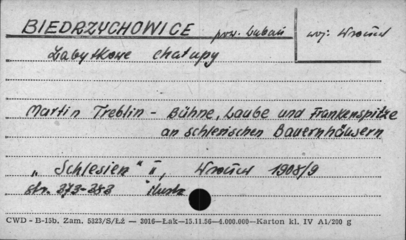 BIEDRZYCHOWICE pow. Lubań woj: Wrocław
Zabytkowe chałupy
Martin Treblin - Bühne, Laube und Frankenspitze
an schlesischen Bauernhäusern
"Schlesien" II, Wrocław 1908/9
str. 273-282 ilustr
CWD - B-15b. Zam. 5323/S/Łż — 2016—Łak—15.11.56—4.000.000—Karton kl. IV A1/200 g